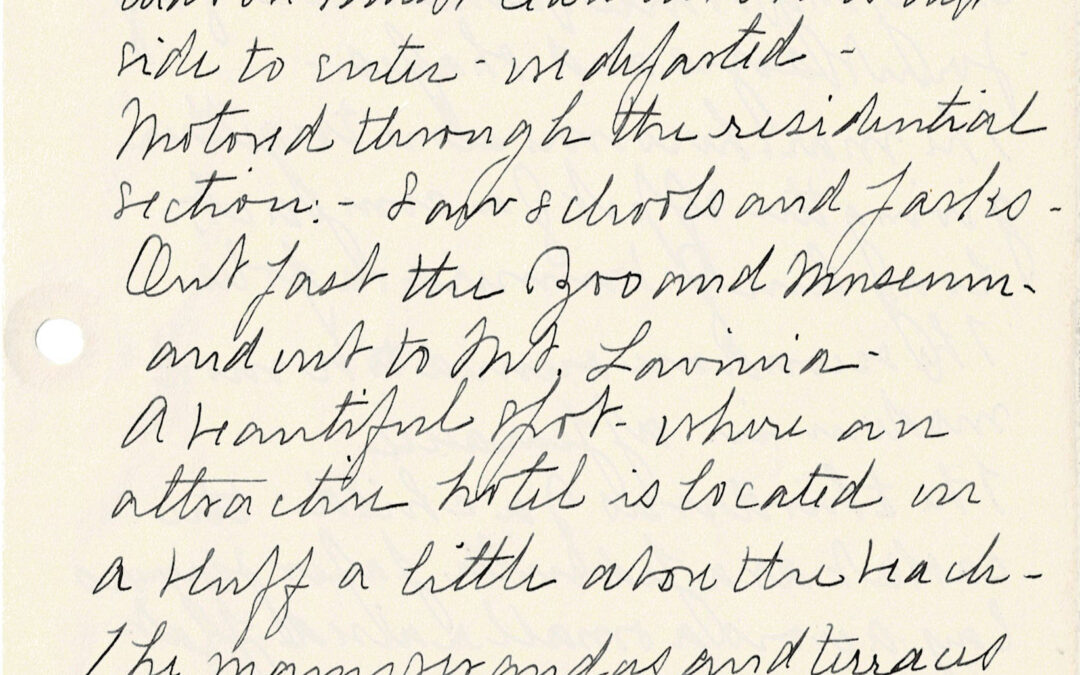 side to enter - we departed -
Motored through the residential
section:- Saw schools and parks -
Out past the Zoo and Museum -
and out to Mt. Lavinia -
A beautiful spot - where an
attractive hotel is located on
a bluff a little above the beach -
The many verandas and terraces